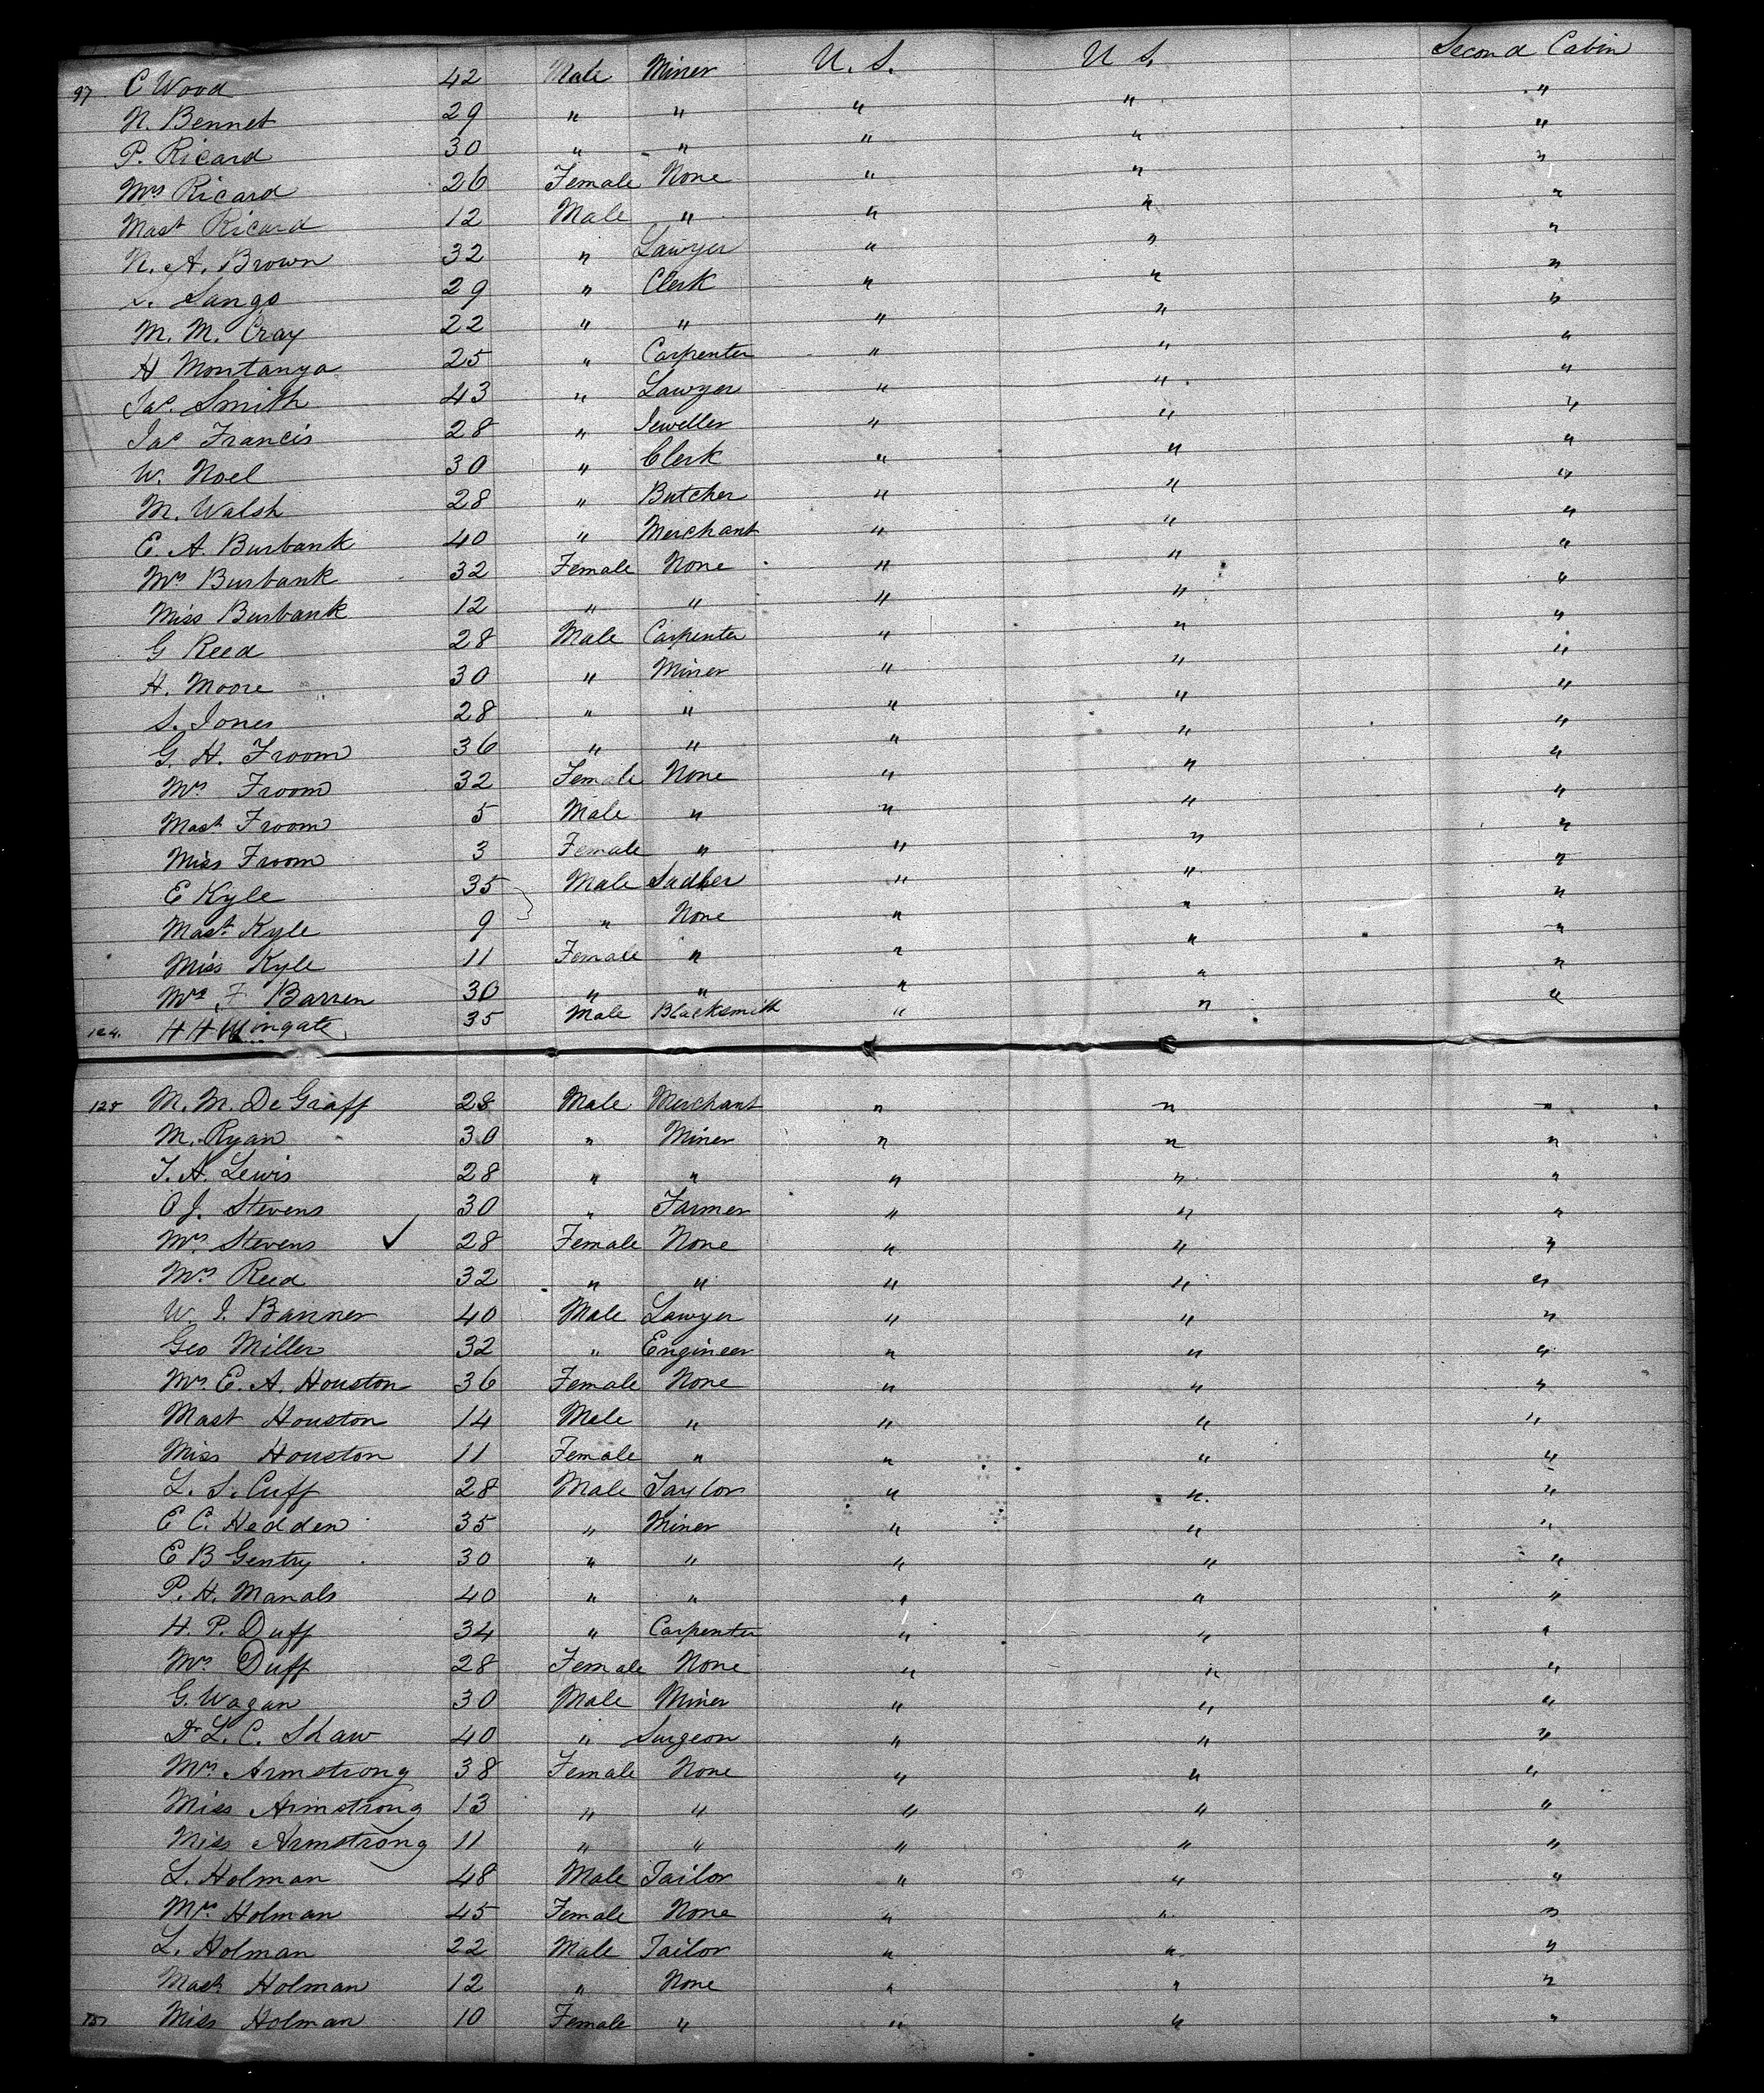 97 C Wood 42 Male Miner U. S. U S. Second Cabin
N. Bennet 29 " " " " "
P. Ricard 30 " " " " "
Mrs Ricard 26 Female None " " "
Mast Ricard 12 Male " " " "
N. A. Brown 32 " Lawyer " " "
Sango 29 " Clerk " " "
M. M. Cray 22 " " " " "
H Montanya 25 " Carpenter " " "
Jas. Smith 43 " Lawyer " " "
Jas Francis 28 " Jeweller " " "
W. Noel 30 " Clerk " " "
M. Walsh 28 " Butcher " " "
E. A. Burbank 40 " Merchant " " "
Mrs Burbank 32 Female None " " "
Miss Burbank 12 " " " " "
G Reed 28 Male Carpenter " " "
H. Moore 30 " Miner " " "
S. Jones 28 " " " " "
G. H. Froom 36 " " " " "
Mrs Froom 32 Female None " " "
Mast Froom 5 Male " " " "
Miss Froom 3 Female " " " "
E Kyle 35 Male Sadler " " "
Mast. Kyle 9 " None " " "
Miss Kyle 11 Female " " " "
Mrs F Barren 30 " " " " "
124. H H Wingate 35 Male Blacksmith " " "
125 M. M. De Graff 28 Male Merchant " " "
M. Ryan 30 " Miner " " "
T. A. Lewis 28 " " " " "
O J. Stevens 30 " Farmer " " "
Mrs. Stevens ✓ 28 Female None " " "
Mrs Reed 32 " " " " "
W. J. Banner 40 Male Lawyer " " "
Geo Miller 32 " Engineer " " "
Mrs. E. A. Houston 36 Female None " " "
Mast Houston 14 Male " " " "
Miss Houston 11 Female " " " "
L. S. Cuff 28 Male Taylor " " "
E C. Hedden 35 " Miner " " "
E B Gentry 30 " " " " "
P. H. Manals 40 " " " " "
H. P. Duff 34 " Carpenter " " "
Mrs. Duff 28 Female None " " "
G. Wagan 30 Male Miner " " "
Dr L. C. Shaw 40 " Surgeon " " "
Mrs. Armstrong 38 Female None " " "
Miss Armstrong 13 " " " " "
Miss Armstrong 11 " " " " "
L. Holman 48 Male Tailor " " "
Mrs Holman 45 Female None " " "
L. Holman 22 Male Tailor " " "
Mast Holman 12 " None " " "
151 Miss Holman 10 Female " " " "